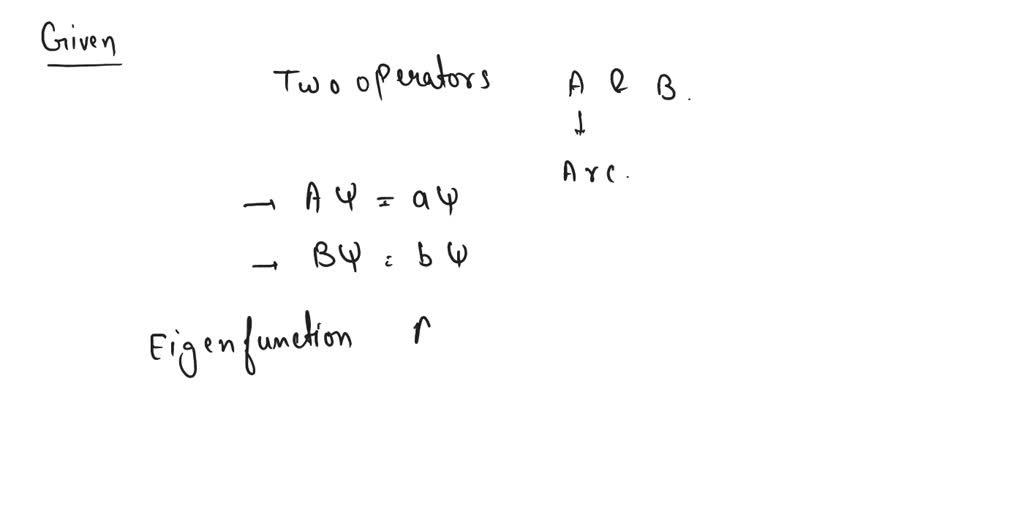 Given
Two operators A & B.
↓
Arc.
→ Aψ = aψ
→ Bψ = bψ
Eigenfunction